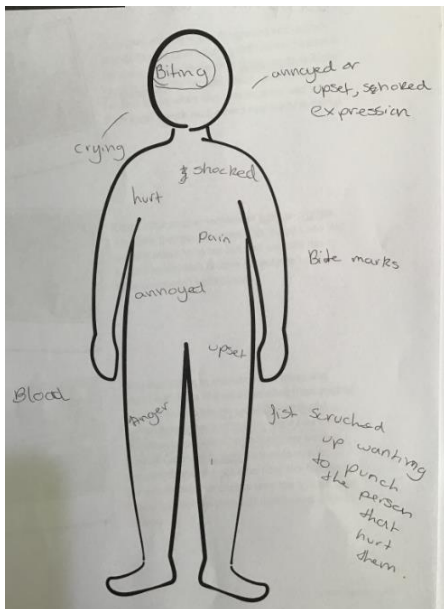 Biting
annoyed or
upset, schoked
expression
crying
shocked
hurt
pain
Bite marks
annoyed
upset
Blood
Anger
fist scruched
up wanting
to punch
the person
that
hurt
them.